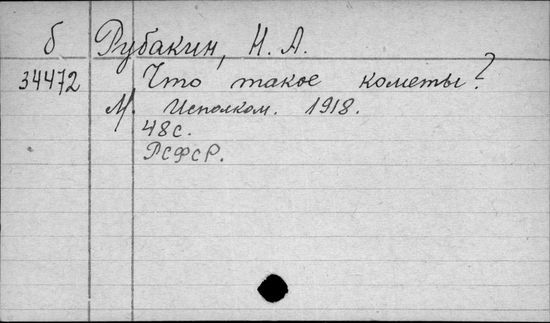 б Рубакин, Н. А.
34472 Что такое кометы?
М. Исполком. 1918.
48с.
РСФСР.